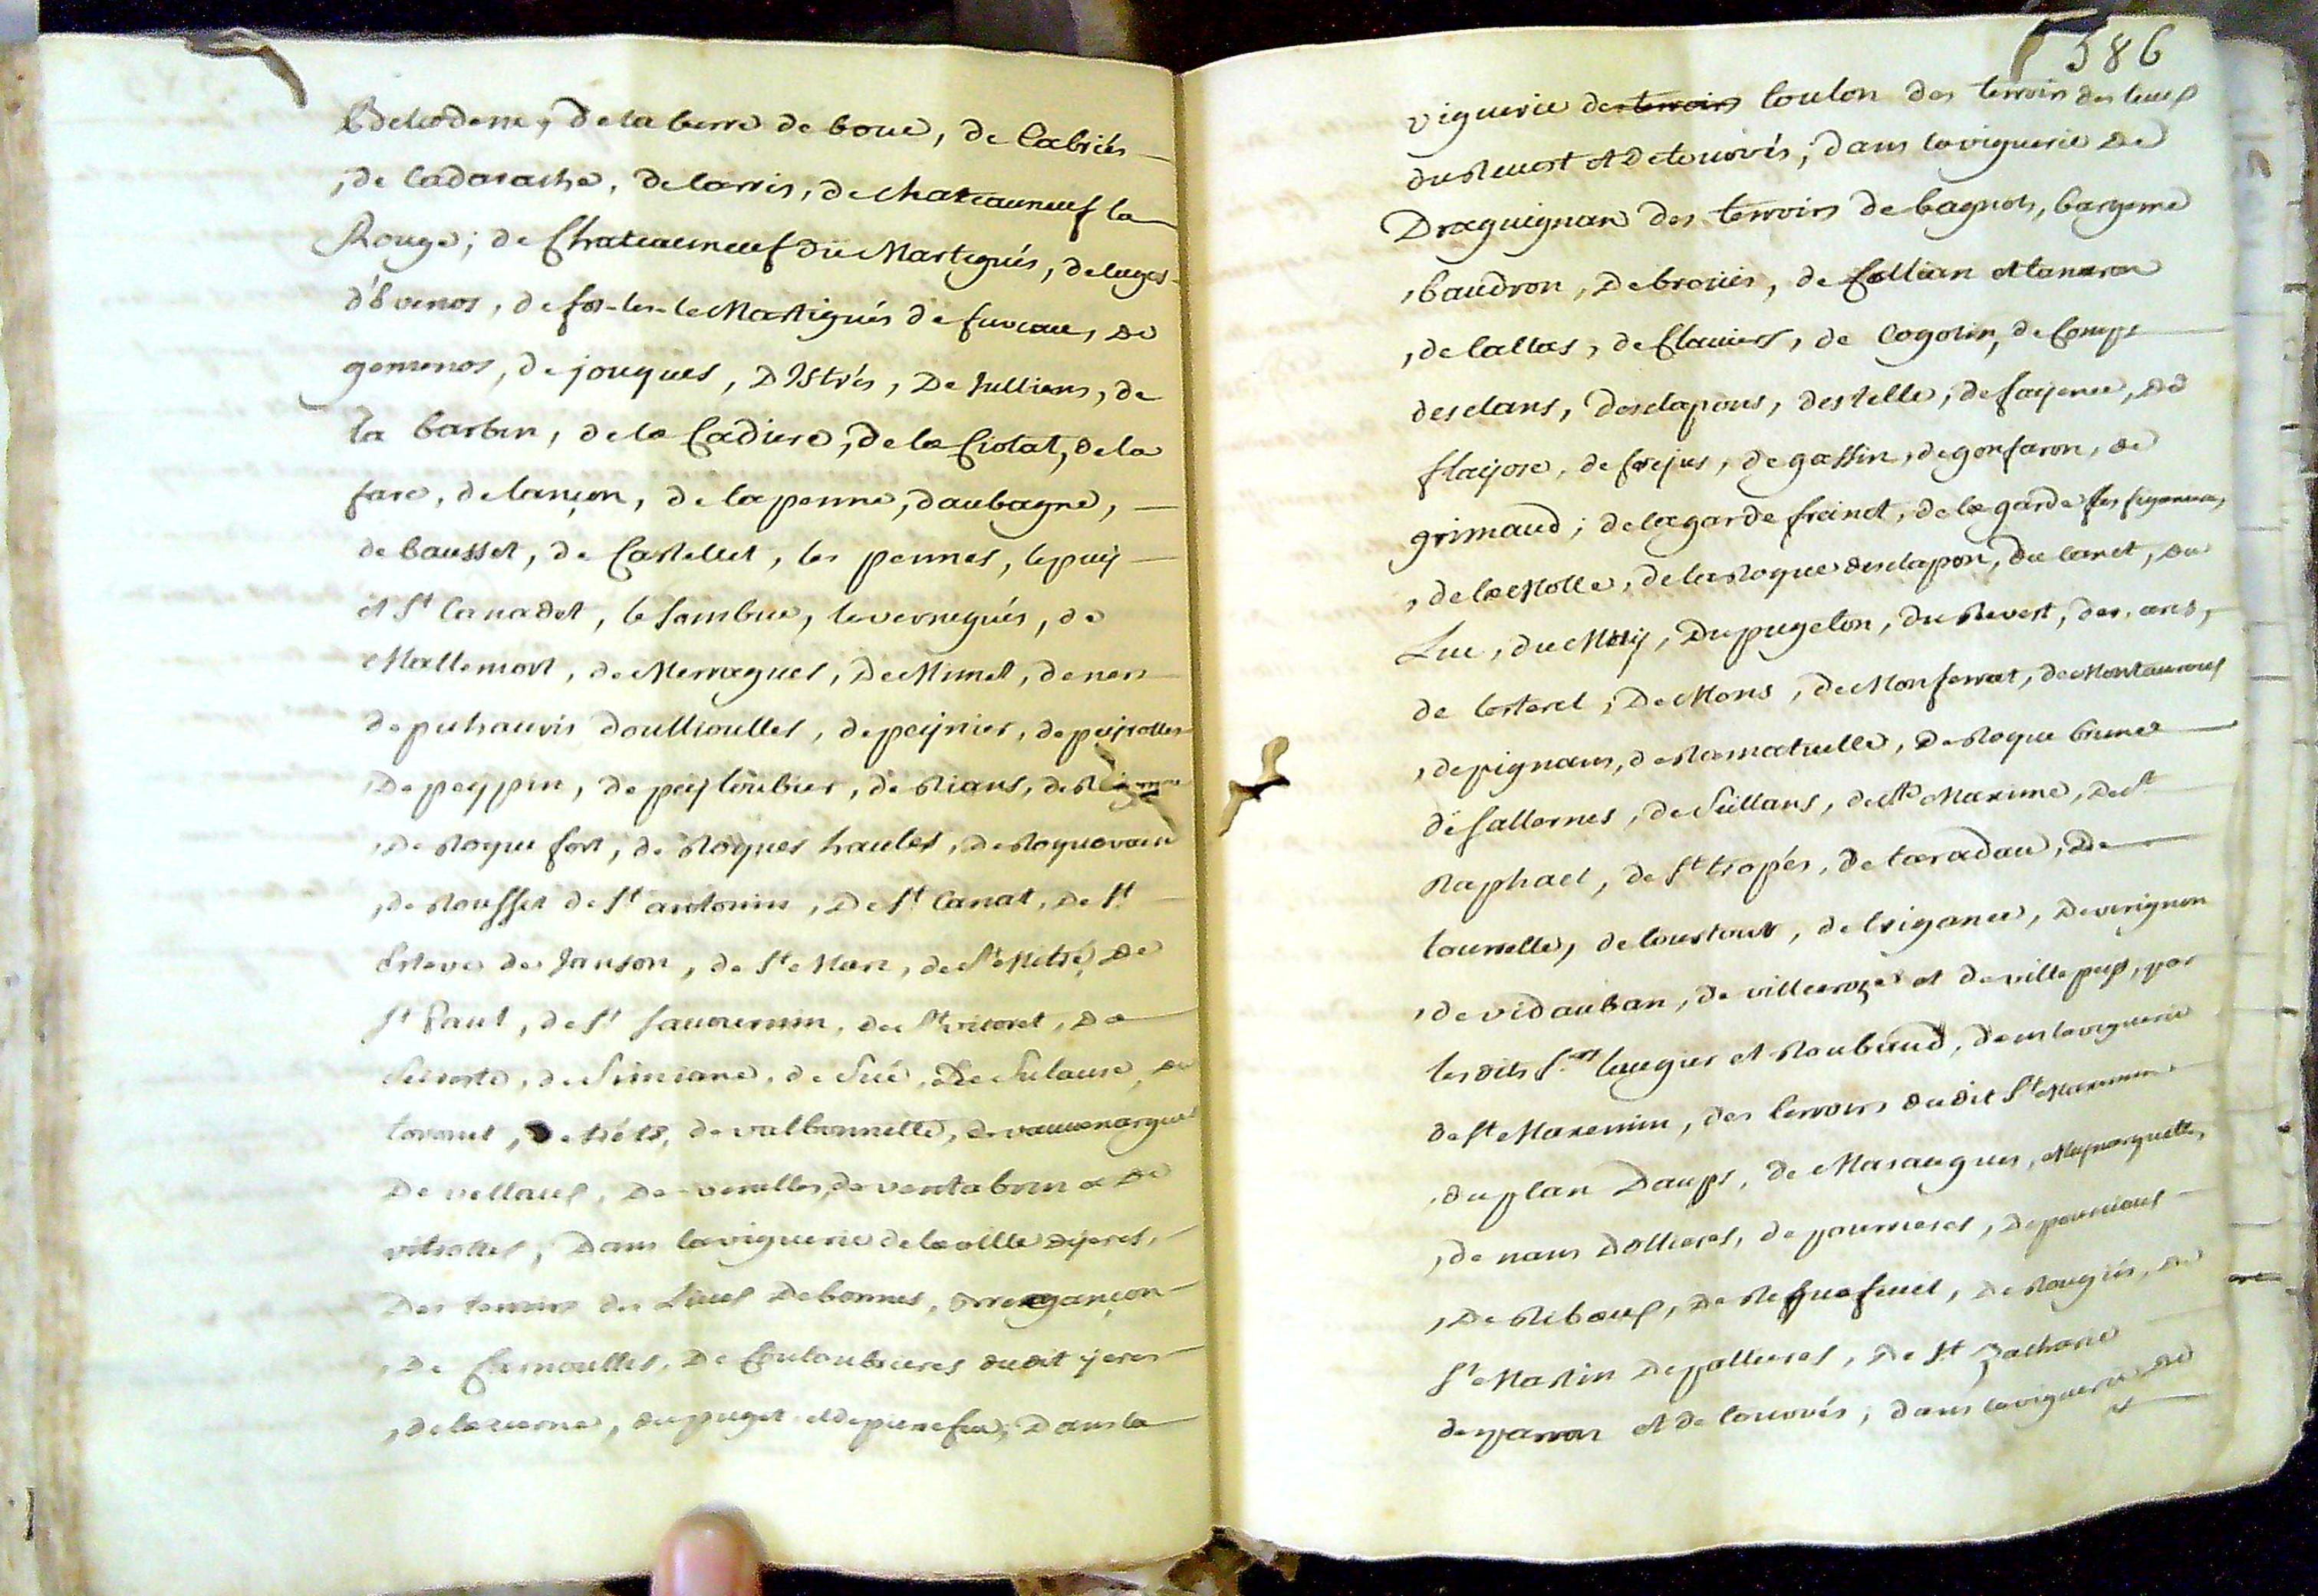 Belcodene, de la barre de bouc, de Cabriés
, de Cadarache, de Carris, de chateauneuf la
Rouge; de Chateauneuf du Martigués, de Cuges
d'Evenos, de fos-les-le Martigués de fuveau, de
gemenos, de jouques, D'Istrés, De Julliens, de
la barben, de la Cadiere, de la Ciotat, de la
fare, de lançon, de la penne, d'aubagne,
de bausset, de Castellet, les pennes, le puy
et St Canadet, le Sambuc, le vernegués, de
Mallemort, de Meyrargues, De Mimet, de ners
de puhauris d'oullioulles, de peynier, de peyrolles
De peyppin, de puyloubier, de Rians, de
, De Roque fort, de Roques hautes, de Roquevaire
, de Rousset de St antonin, De St Canat, De St
Esteve de Janson, de St Marc, de St Mitre, De
St Paul, de St Savournin, de St victoret, De
, de Simiane, de Sué, De Sulauze, du
tovonet, De tréts, de valbonnette, de vauvenargues
De vellaux, De venelles, de ventabren & De
vitrolles; Dans la viguerie de la ville d'yeres,
Des terroirs des Lieux De bormes, Bregançon
, De Carnoulles, De Couloubrieres dudit yeres
, de la verne, du puget et de pierrefeu; Dans la
586
viguerie des terroirs toulon des terroirs des lieux
du Revest et de tourvés; dans la viguerie De
Draguignan des terroirs de bagnols, bargeme
, baudron, De broves, de Callian et tanaron
, de Callas, de Claviers, de Cogolin, de Comps
desclans, desclapons, destelle, de fayence, De
flayosc, de frejus, de gassin, de gonfaron, de
grimaud; de la garde freinet, de la garde
, de la Molle, de la Roque desclapon, du Canet, du
Luc, du Muy, Du pugeton, du Revest, des arcs,
de lesterel, De Mons, de Monferrat, de Montauroux
, de pignans, de Ramatuelle, De Roque brune
de Sallernes, de Sillans, de Ste Maxime, De St
Raphael, de St tropés, de taradau, De
tourrelle, de tourtour, de trigance, De verignon
, de vidauban, de villecroze et de ville peys, par
lesdits Srs laugier et Roubaud, dans la viguerie
de St Maxemin, des terroirs dudit St Maxemin
, du plan Daups, de Masaugues, Meynarguette,
, de nans Dollieres, de pourrieres, De pourcieux
, De Riboux, De Roquefeuil, De Rougiés, De
St Martin De pallieres, De St Zacharie
de varron et de tourvés; dans la viguerie de